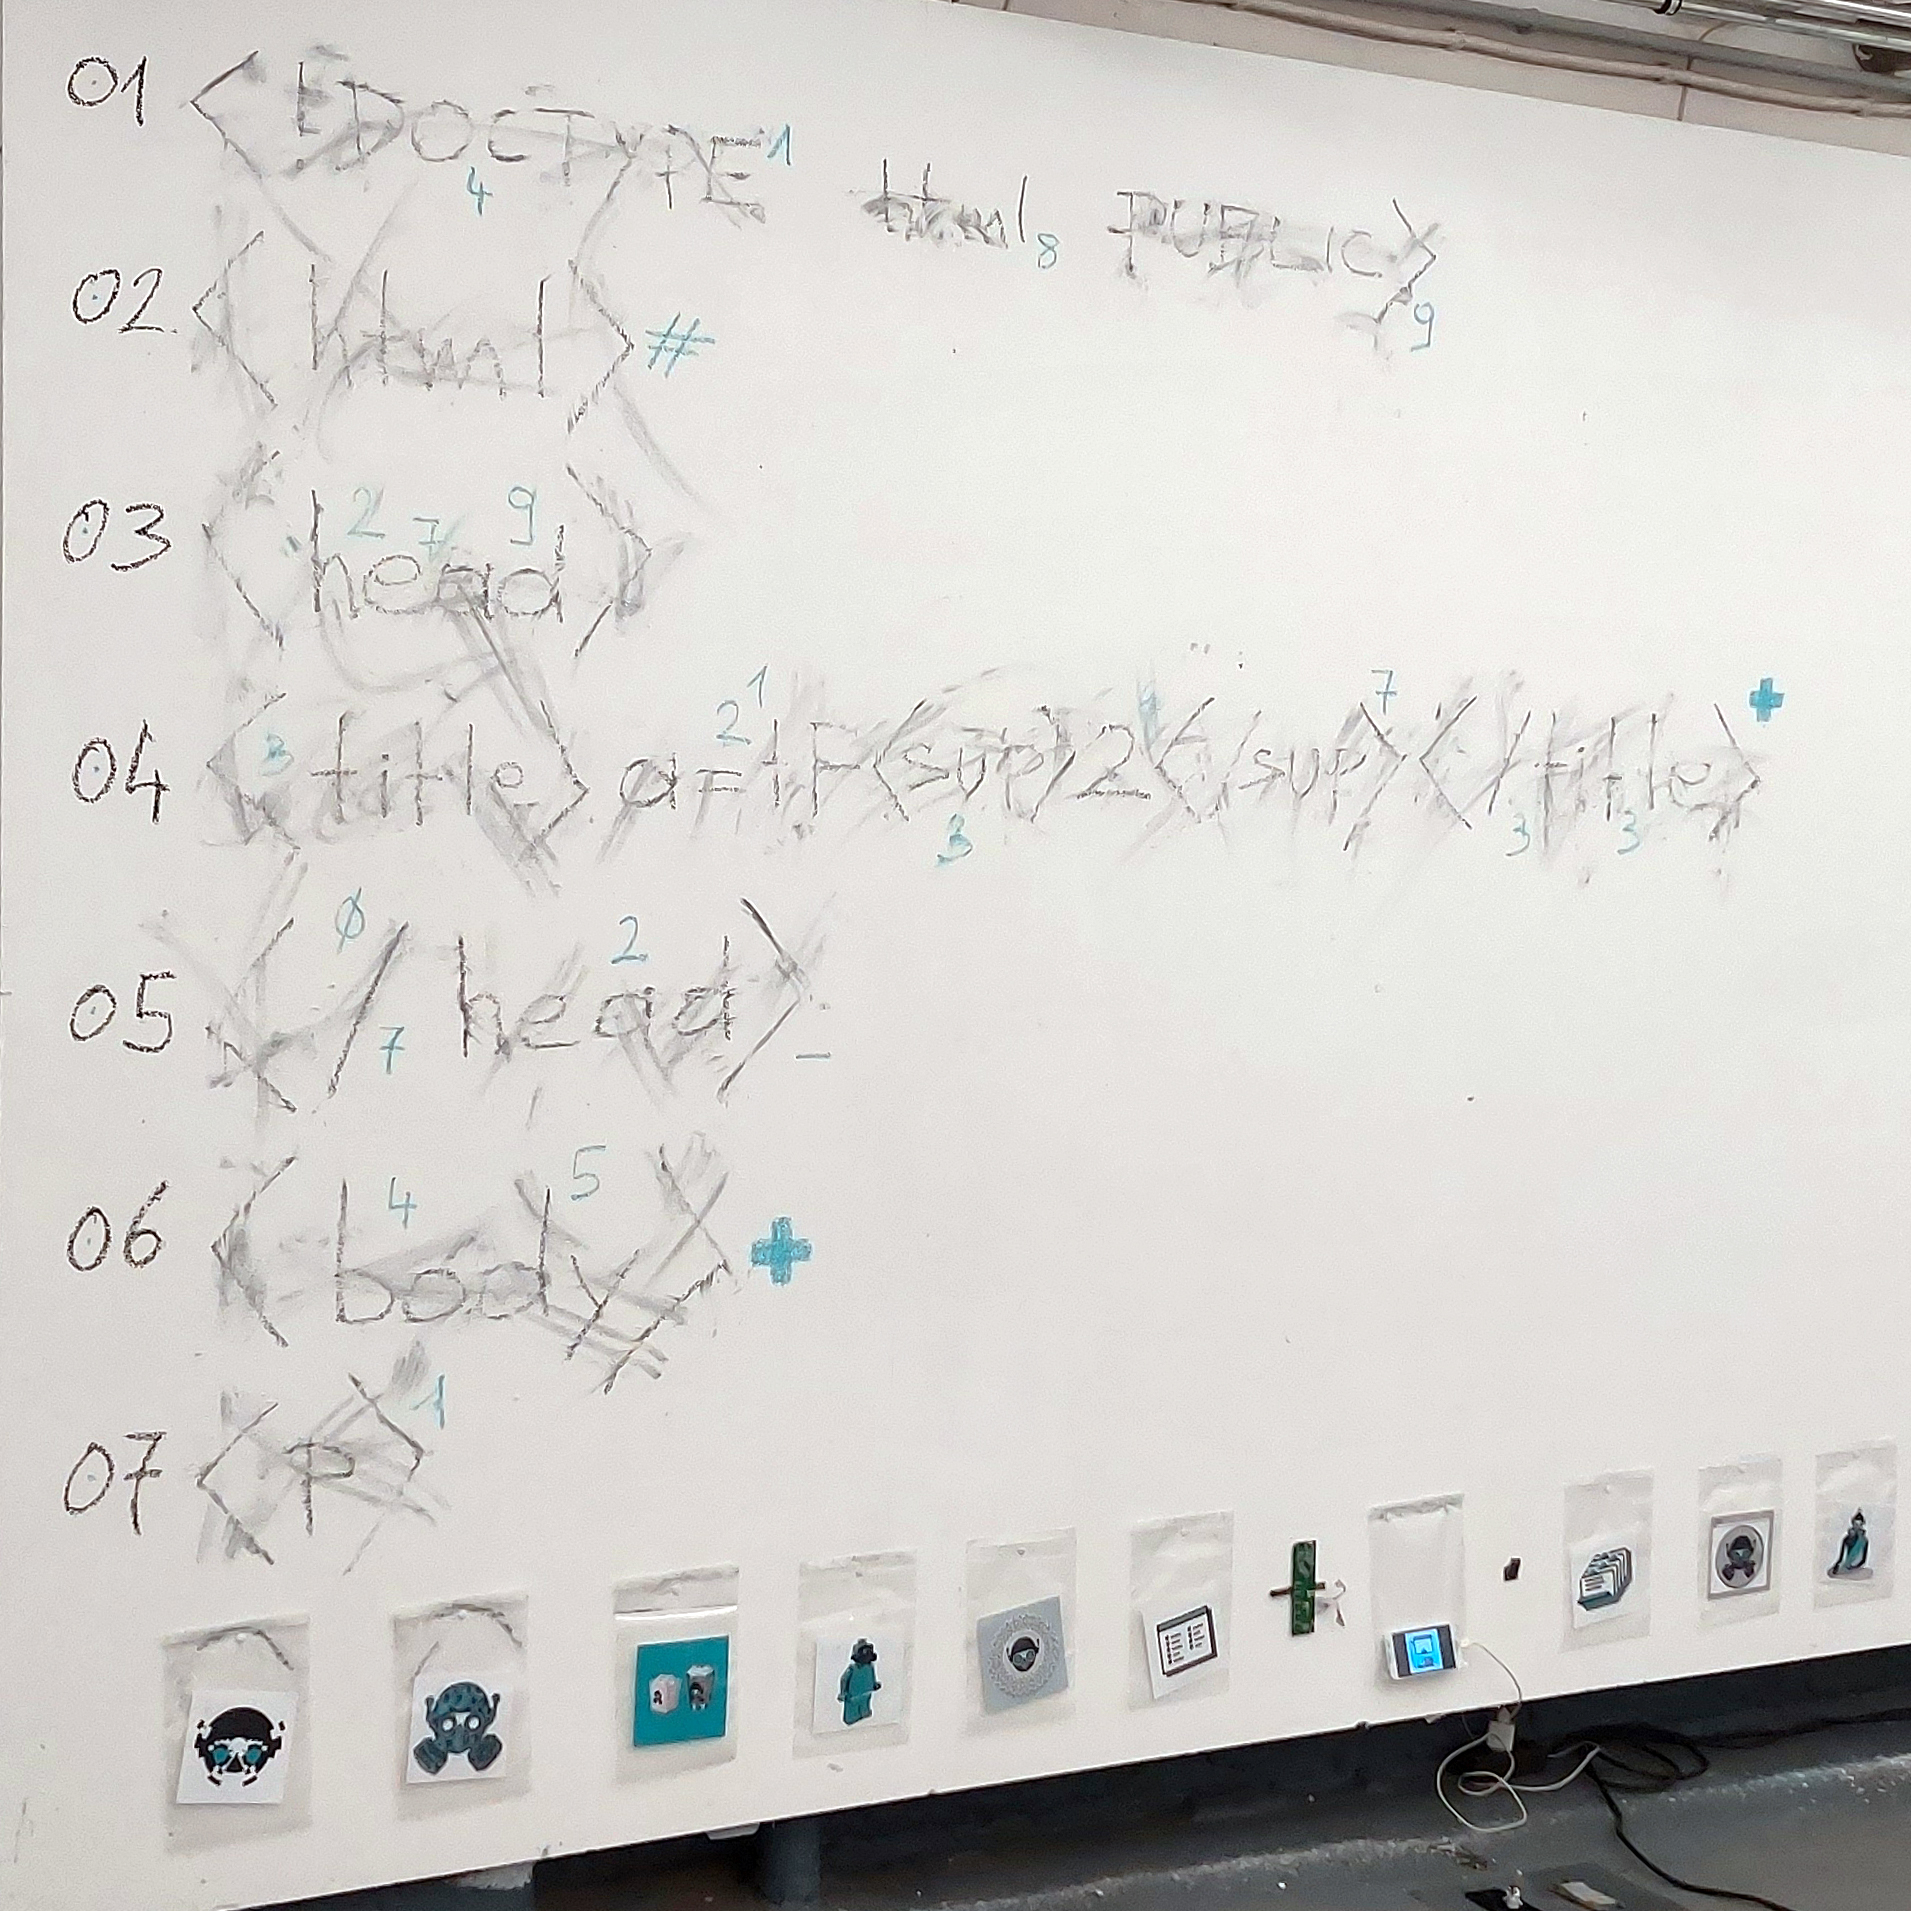 01 <!DOCTYPE html PUBLIC>
02 <html> #
03 <head>
04 <title> a=tF<sup>2</sup></title>
05 </head>
06 <body>
07 <P>